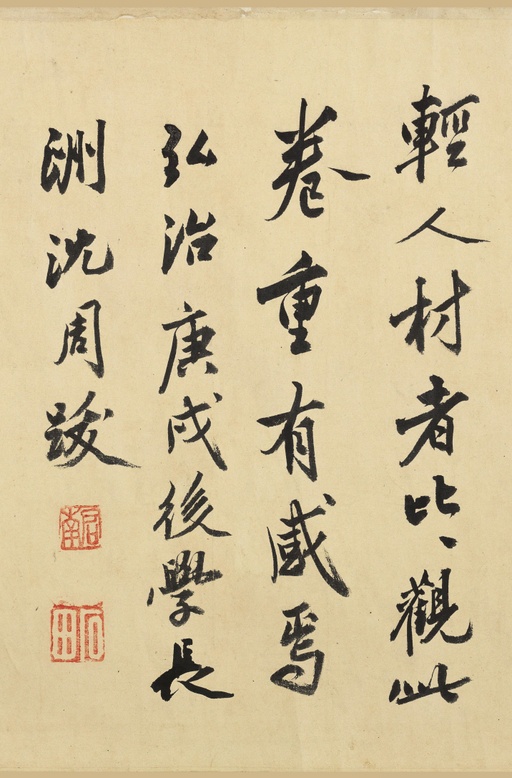 輕人材者比〻觀此
卷重有感焉
弘治庚戌後學長
洲沈周跋
啟南
石田